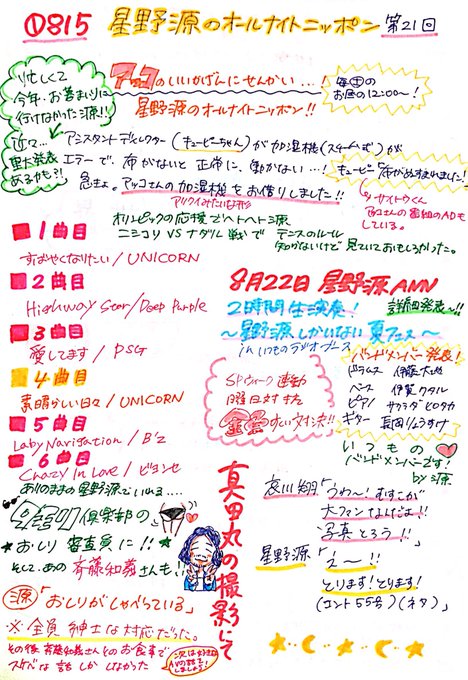 ①815 星野源のオールナイトニッポン 第21回
忙しくて
今年、お墓まいりに
行けなかった源!!
近々…
重大発表
あるかも?!
アッコのいいかげんにせんかい…!
星野源のオールナイトニッポン!!
毎週土の
お昼の12:00〜!
アシスタントディレクター(キュービーちゃん)が加湿機(スチーム式)が
エラーで、布がないと正常に、働かない…!
急きょ。アッコさんの加湿機をお借りしました!!
キュービー「布が出来ました!
サイトウくん
アッコさんの番組のADも
している。
オリンピックの応援でヘトヘト源
ニシコリ VS ナダル戦で テニスのルール
知らないけど 見ていておもしろかった。
1曲目
すばやくなりたい/UNICORN
2曲目
Highway Star/Deep Purple
3曲目
愛してます/PSG
4曲目
素晴らしい日々/UNICORN
5曲目
Lady Navigation/B'z
6曲目
Crazy In Love/ビヨンセ
8月22日 星野源ANN
2時間生演奏! 詳細発表〜!!
〜星野源しかいない夏フェス〜
in いつものラジオブース
SPウィーク連動
曜日対抗
すい対決!!
バンドメンバー発表!
ドラムス 伊藤大地
ベース 伊賀ワタル
ピアノ サクラダヒロタカ
ギター 長岡りょうすけ
いつもの
バンドメンバーです!
by 源
ありのままの星野源でいれる…
倶楽部の
おしり審査員に!!
そして、あの 斉藤和義さんも!!
源「おしりがしゃべっている」
※全員紳士な対応だった。
その後 斉藤和義さんとのお食事で
スケベな話しかしなかった
真田丸の撮影にて
哀川翔「うわ〜!むすこが
大ファンなんだよ!!
写真とろう!!」
星野源「え〜!!
とります!とります!
(コント55号)(ネタ)